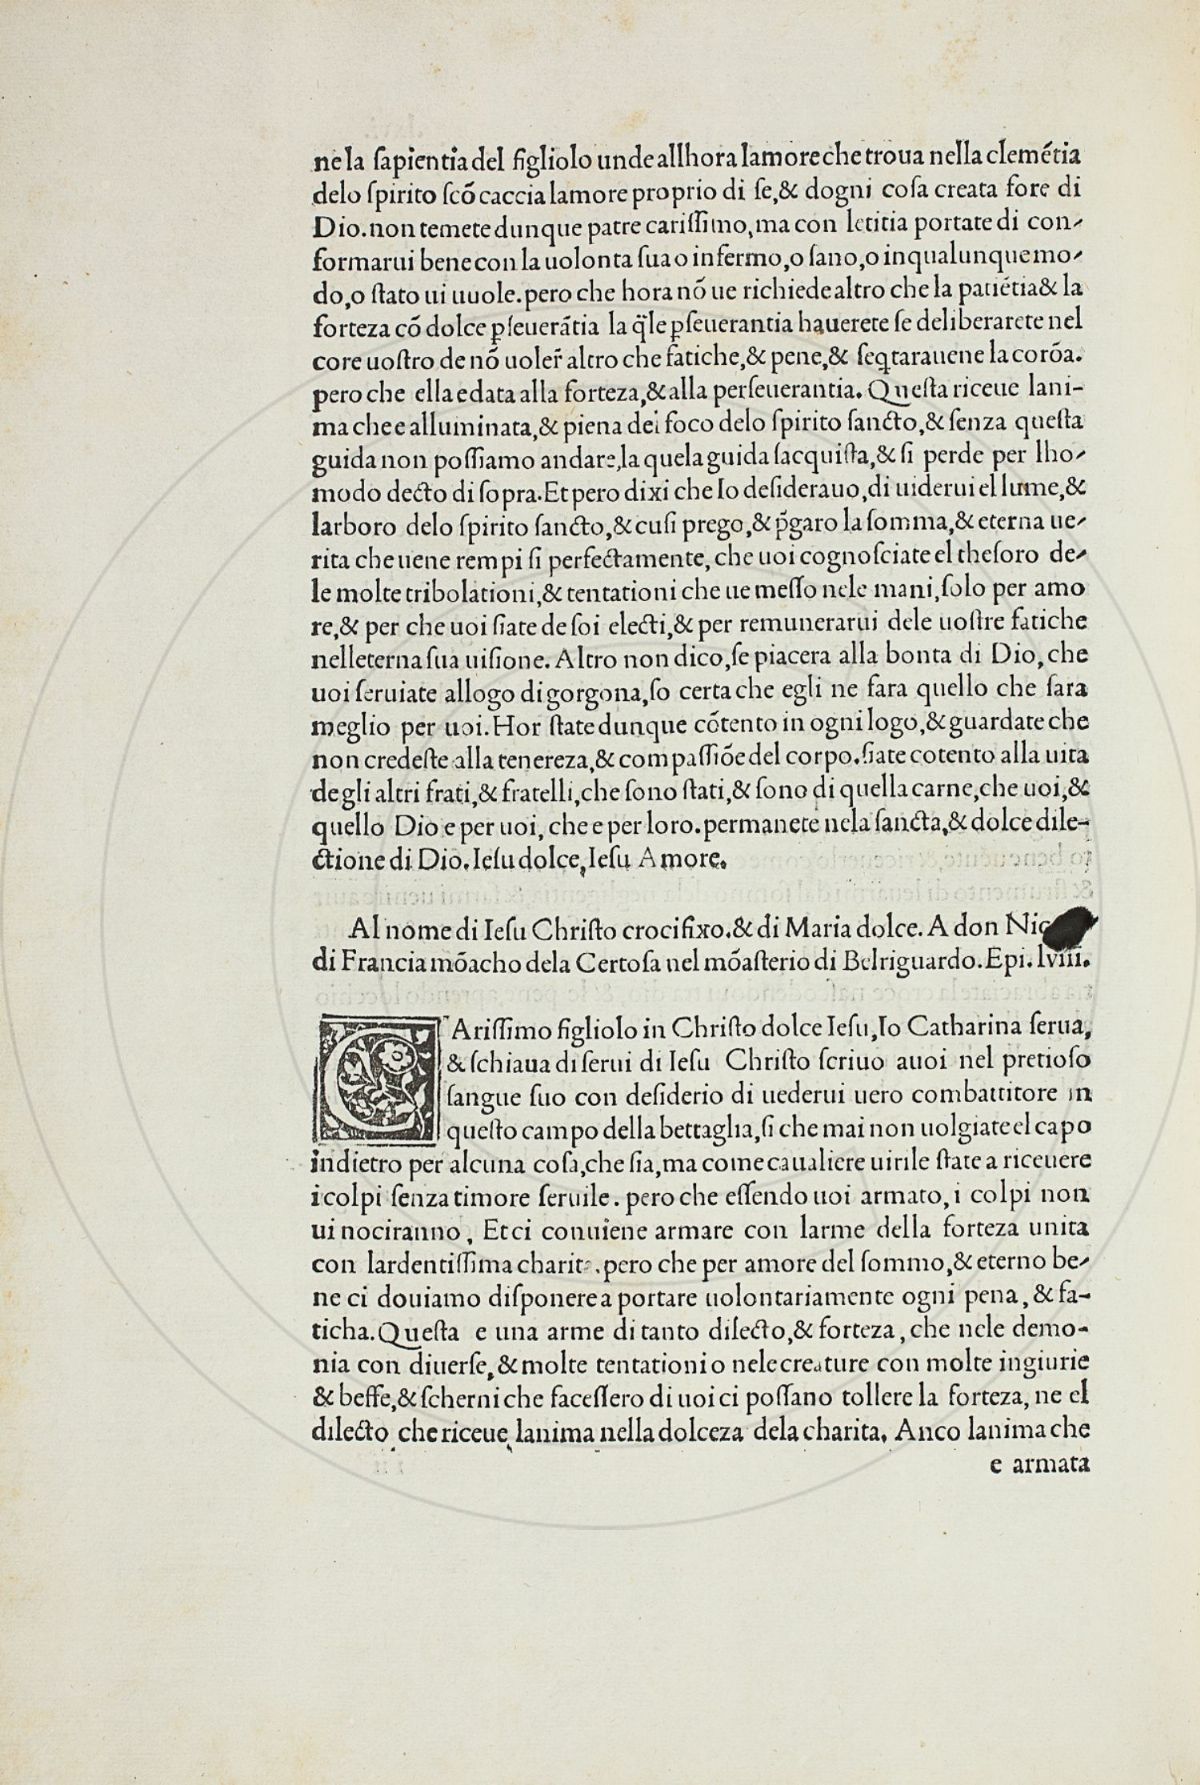 ne la ſapientia del figliolo unde allhora lamore che troua nella cleme᷃tia
delo ſpirito ſcõ caccia lamore proprio di ſe,& dogni coſa creata fore di
Dio.non temete dunque patre cariſſimo,ma con letitia portate di con-
formarui bene con la uolonta ſua o infermo,o ſano,o in qualunque mo-
do,o ſtato ui uuole.pero che hora nõ ue richiede altro che la patiẽtia & la
forteza cõ dolce ꝑſeuerãtia la q̃le ꝑſeuerantia hauerete ſe deliberarete nel
core uoſtro de nõ uoler̃ altro che fatiche,& pene,& ſeq̃tarauene la corõa.
pero che ella e data alla forteza,& alla perſeuerantia. Queſta riceue lani-
ma che e alluminata,& piena dei foco delo ſpirito ſancto,& ſenza queſta
guida non poſſiamo andare,la quela guida ſacquiſta,& ſi perde per lho-
modo decto di ſopra.Et pero dixi che Io deſiderauo,di uiderui el lume,&
larboro delo ſpirito ſancto,& cuſi prego,& p̃garo la ſomma,& eterna ue-
rita che uene rempi ſi perfectamente, che uoi cognoſciate el theſoro de-
le molte tribolationi,& tentationi che ue meſſo nele mani,ſolo per amo
re,& per che uoi ſiate de ſoi electi,& per remunerarui dele uoſtre fatiche
nelleterna ſua uiſione. Altro non dico,ſe piacera alla bonta di Dio, che
uoi ſeruiate allogo di gorgona,ſo certa che egli ne fara quello che ſara
meglio per uoi. Hor ſtate dunque cõtento in ogni logo,& guardate che
non credeſte alla tenereza,& compaſſiõe del corpo.ſiate cotento alla uita
degli altri frati,& fratelli,che ſono ſtati,& ſono di quella carne,che uoi,&
quello Dio e per uoi, che e per loro.permanete nela ſancta,& dolce dile-
ctione di Dio. Ieſu dolce, Ieſu Amore.
Al nome di Ieſu Chriſto crocifixo.& di Maria dolce. A don Nic
di Francia mõacho dela Certoſa nel mõaſterio di Belriguardo. Epi. lviii.
CAriſſimo figliolo in Chriſto dolce Ieſu, Io Catharina ſerua,
& ſchiaua di ſerui di Ieſu Chriſto ſcriuo auoi nel pretioſo
ſangue ſuo con deſiderio di uederui uero combattitore in
queſto campo della bettaglia,ſi che mai non uolgiate el capo
indietro per alcuna coſa,che ſia,ma come caualiere uirile ſtate a riceuere
i colpi ſenza timore ſeruile. pero che eſſendo uoi armato, i colpi non
ui nociranno, Et ci conuiene armare con larme della forteza unita
con lardentiſſima charita.pero che per amore del ſommo,& eterno be-
ne ci douiamo diſponere a portare uolontariamente ogni pena, & fa-
ticha. Queſta e una arme di tanto dilecto,& forteza, che nele demo-
nia con diuerſe,& molte tentationi o nele creature con molte ingiurie
& beffe,& ſcherni che faceſſero di uoi ci poſſano tollere la forteza, ne el
dilecto, che riceue, lanima nella dolceza dela charita. Anco lanima che
e armata